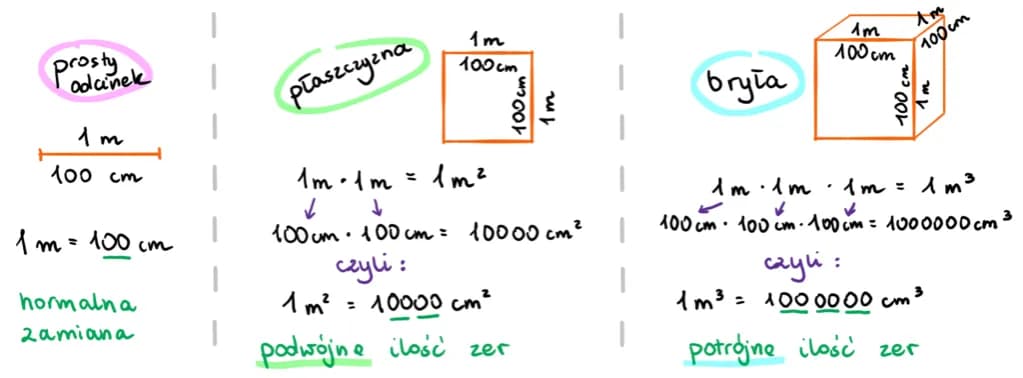 prosty
odcinek
1 m
100 cm
1 m = 100 cm
normalna
zamiana
płaszczyzna
1m
100cm
100cm
1m
1m · 1m = 1m²
100cm · 100 cm = 10000 cm²
czyli :
1 m² = 10000 cm²
podwójna ilość zer
bryła
1m
100cm
1m
100cm
100cm
1m
1m · 1m · 1m = 1 m³
100cm · 100cm · 100cm = 1000000cm³
czyli :
1m³ = 1000000 cm³
potrójna ilość zer